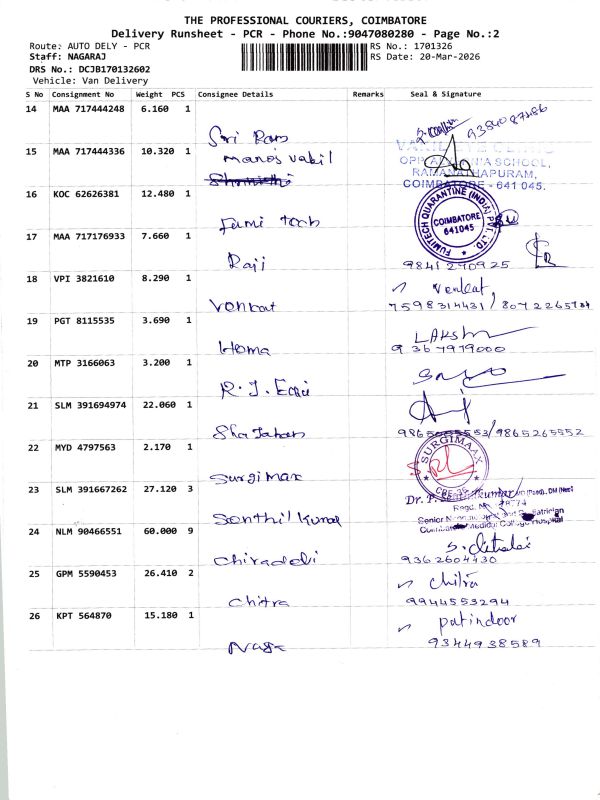 THE PROFESSIONAL COURIERS, COIMBATORE
Delivery Runsheet - PCR - Phone No.:9047080280 - Page No.:2
Route: AUTO DELY - PCR RS No.: 1701326
Staff: NAGARAJ RS Date: 20-Mar-2026
DRS No.: DCJB170132602
Vehicle: Van Delivery
S No Consignment No Weight PCS Consignee Details Remarks Seal & Signature
14 MAA 717444248 6.160 1
Sri Ram
15 MAA 717444336 10.320 1
Manoj vakil
OPP
SCHOOL,
RAMANATHAPURAM,
COIMBATORE - 641 045.
16 KOC 62626381 12.480 1
Fumi tech
FUMITECH QUARANTINE (INDIA) PVT. LTD.
COIMBATORE
641045
17 MAA 717176933 7.660 1
Raji
9841290925
18 VPI 3821610 8.290 1
Venkat
Venkat,
7598314431 /
19 PGT 8115535 3.690 1
Homa
9367979000
20 MTP 3166063 3.200 1
21 SLM 391694974 22.060 1
Sha Jahan
/9865265552
22 MYD 4797563 2.170 1
Surgimax
SURGIMAAX
CBE-35
23 SLM 391667262 27.120 3
Senthil kumar
Dr.
24 NLM 90466551 60.000 9
9362604430
25 GPM 5590453 26.410 2
Chitra
Chitra
9944553294
26 KPT 564870 15.180 1
patindoor
9344938589